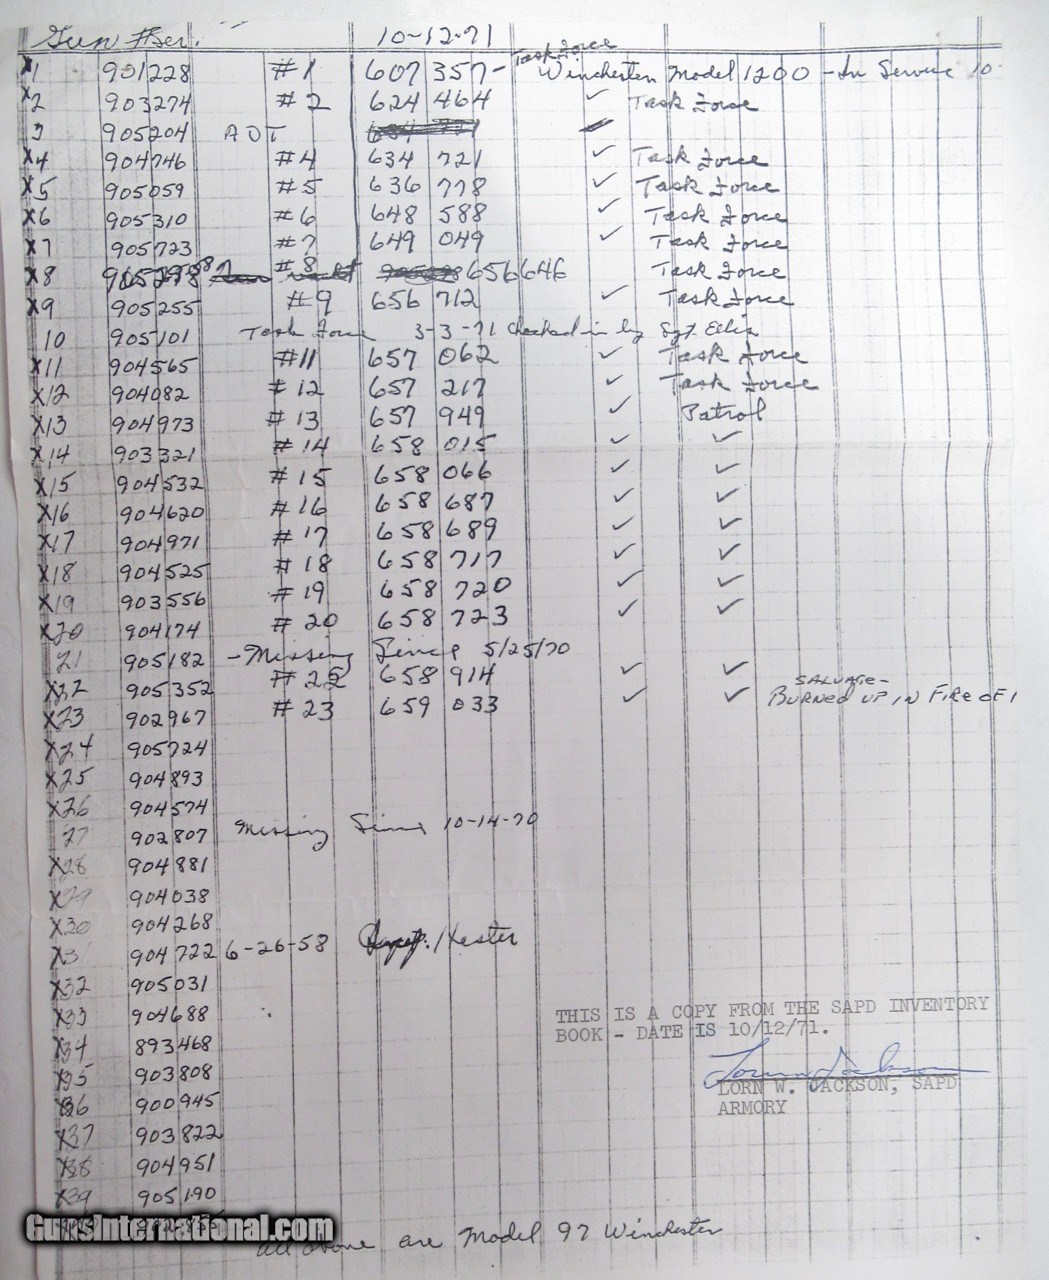 Gun #Ser. 10-12-71
X1 901228 #1 607 357- Task Force Winchester Model 1200 - In Service 10
X2 903274 #2 624 464 ✓ Task Force
3 905204 AOT
X4 904746 #4 634 721 ✓ Task Force
X5 905059 #5 636 778 ✓ Task Force
X6 905310 #6 648 588 ✓ Task Force
X7 905723 #7 649 049 ✓ Task Force
X8 #8 656646 Task Force
X9 905255 #9 656 712 ✓ Task Force
10 905101 Task Force 3-3-71 Checked in by Sgt Ellis
X11 904565 #11 657 062 ✓ Task Force
X12 904082 #12 657 217 ✓ Task Force
X13 904973 #13 657 949 ✓ Patrol
X14 903321 #14 658 015 ✓ ✓
X15 904532 #15 658 066 ✓ ✓
X16 904620 #16 658 687 ✓ ✓
X17 904971 #17 658 689 ✓ ✓
X18 904525 #18 658 717 ✓ ✓
X19 903556 #19 658 720 ✓ ✓
X20 904174 #20 658 723 ✓ ✓
21 905182 - Missing Since 5/25/70
X22 905352 #22 658 914 ✓ ✓
SALVAGE-
X23 902967 #23 659 033 ✓ ✓ BURNED UP IN FIRE OF 1
X24 905724
X25 904893
X26 904574
27 902807 Missing Since 10-14-70
X28 904881
X29 904038
X30 904268
X3 904722 6-26-58 Hester
X32 905031
X33 904688
X34 893468
X35 903808
X36 900945
X37 903822
X38 904951
X39 905190
all above are Model 97 Winchester
THIS IS A COPY FROM THE SAPD INVENTORY
BOOK - DATE IS 10/12/71.
Lorn Jackson
LORN W. JACKSON, SAPD
ARMORY
GunsInternational.com